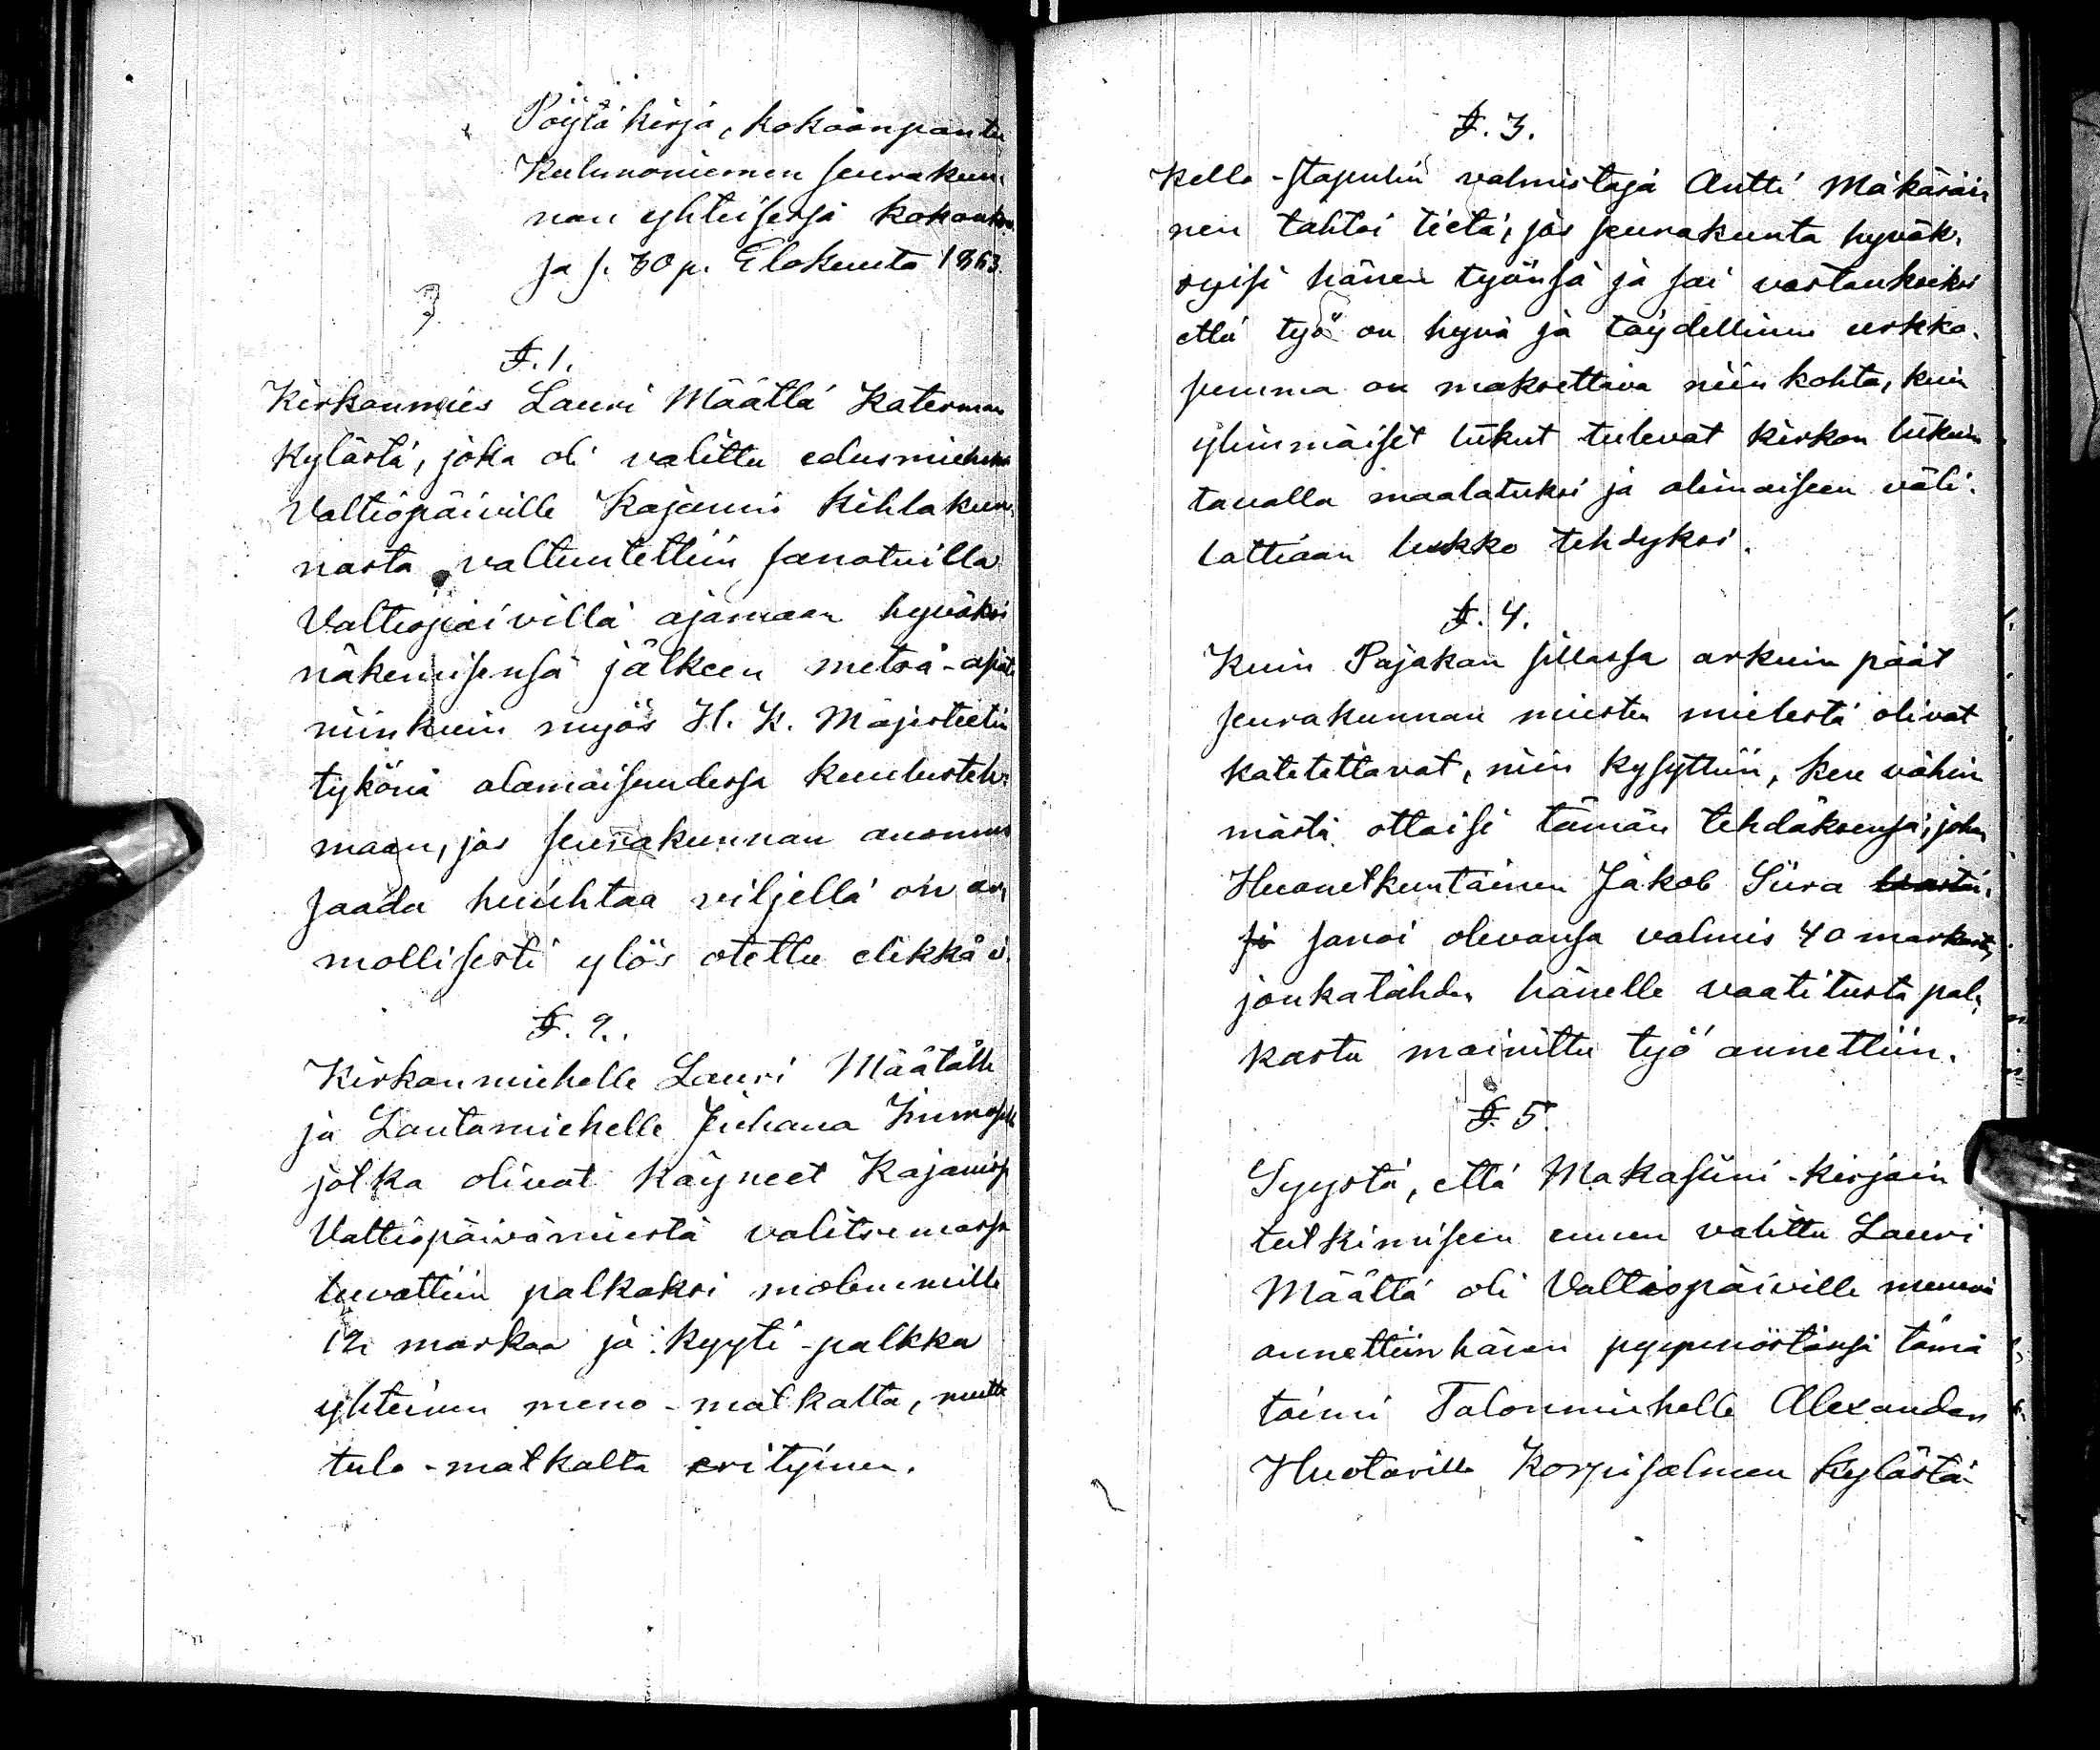 Pöytäkirja, kokoonpantu
Kuhmoniemen seurakun-
nan yhteisessä kokouk-
sa s. 30 p. Elokuuta 1863.
§. 1.
Kirkonmies Lauri Määttä Katerman
kylästä, joka oli valittu edusmieheksi
Valtiopäiville Kajaani kihlakun-
nasta valtuutettiin sanotuilla
Valtiopäivillä ajamaan hyväksi
näkemisensä jälkeen metsä-asiat
niinkuin myös H. K. Majesteetin
tykönä alamaisuudessa kuulustele-
maan, jos seurakunnan anomus
saada huuhtaa viljellä on ar-
mollisesti ylös otettu elikkä ei.
§. 2.
Kirkonmiehelle Lauri Määtälle
ja Lautamiehelle Juhana Immoselle
jotka olivat käyneet Kajanissa
Valtiopäivämiestä valitsemassa
luvattiin palkaksi molemmille
12 markaa ja kyyti-palkka
yhteinen meno-matkalta, mutta
tulo-matkalta erityinen.
§. 3.
Kello-stapulin valmistaja Antti Mäkäräi-
nen tahtoi tietä, jos seurakunta hyväk-
syisi hänen työnsä ja sai vastaukseksi
että työ on hyvä ja täydellinen urkka-
summa on maksettava niin kohta, kuin
ylimmäiset lukut tulevat kirkon lukuin
tavalla maalatuksi ja alimaiseen väli-
lattiaan lukko tehdyksi.
§. 4.
Kuin Pajakan sillassa arkuin päät
seurakunnan miesten mielestä olivat
katetettavat, niin kysyttiin, ken vähim-
mästä ottaisi tämän tehdäksensä, johon
Huonetkuntainen Jakob Siira
sanoi olevansa valmis 40 markasta,
jonkatähden hänelle vaatitusta pal-
kasta mainittu työ annettiin.
§. 5.
Syystä, että Makasiini-kirjain
tutkimiseen ennen valittu Lauri
Määttä oli Valtiopäiville menevä
annettiin hänen pyynnöstänsä tämä
toimi Talonmiehelle Alexander
Huotarille Korpisalmen kylästä